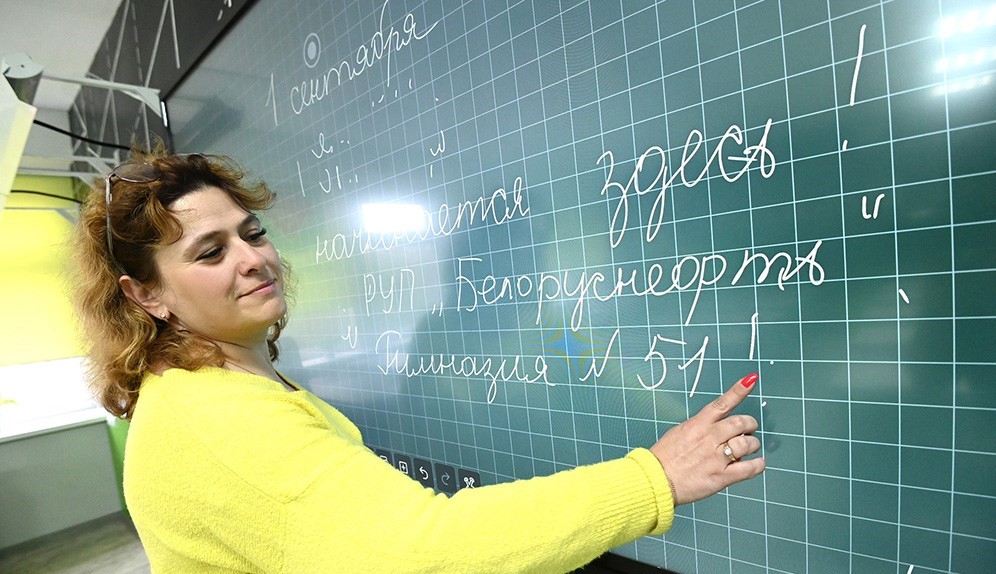 1 сентября
начинается здесь !
РУП „Белоруснефть“
Гимназия N 51 !